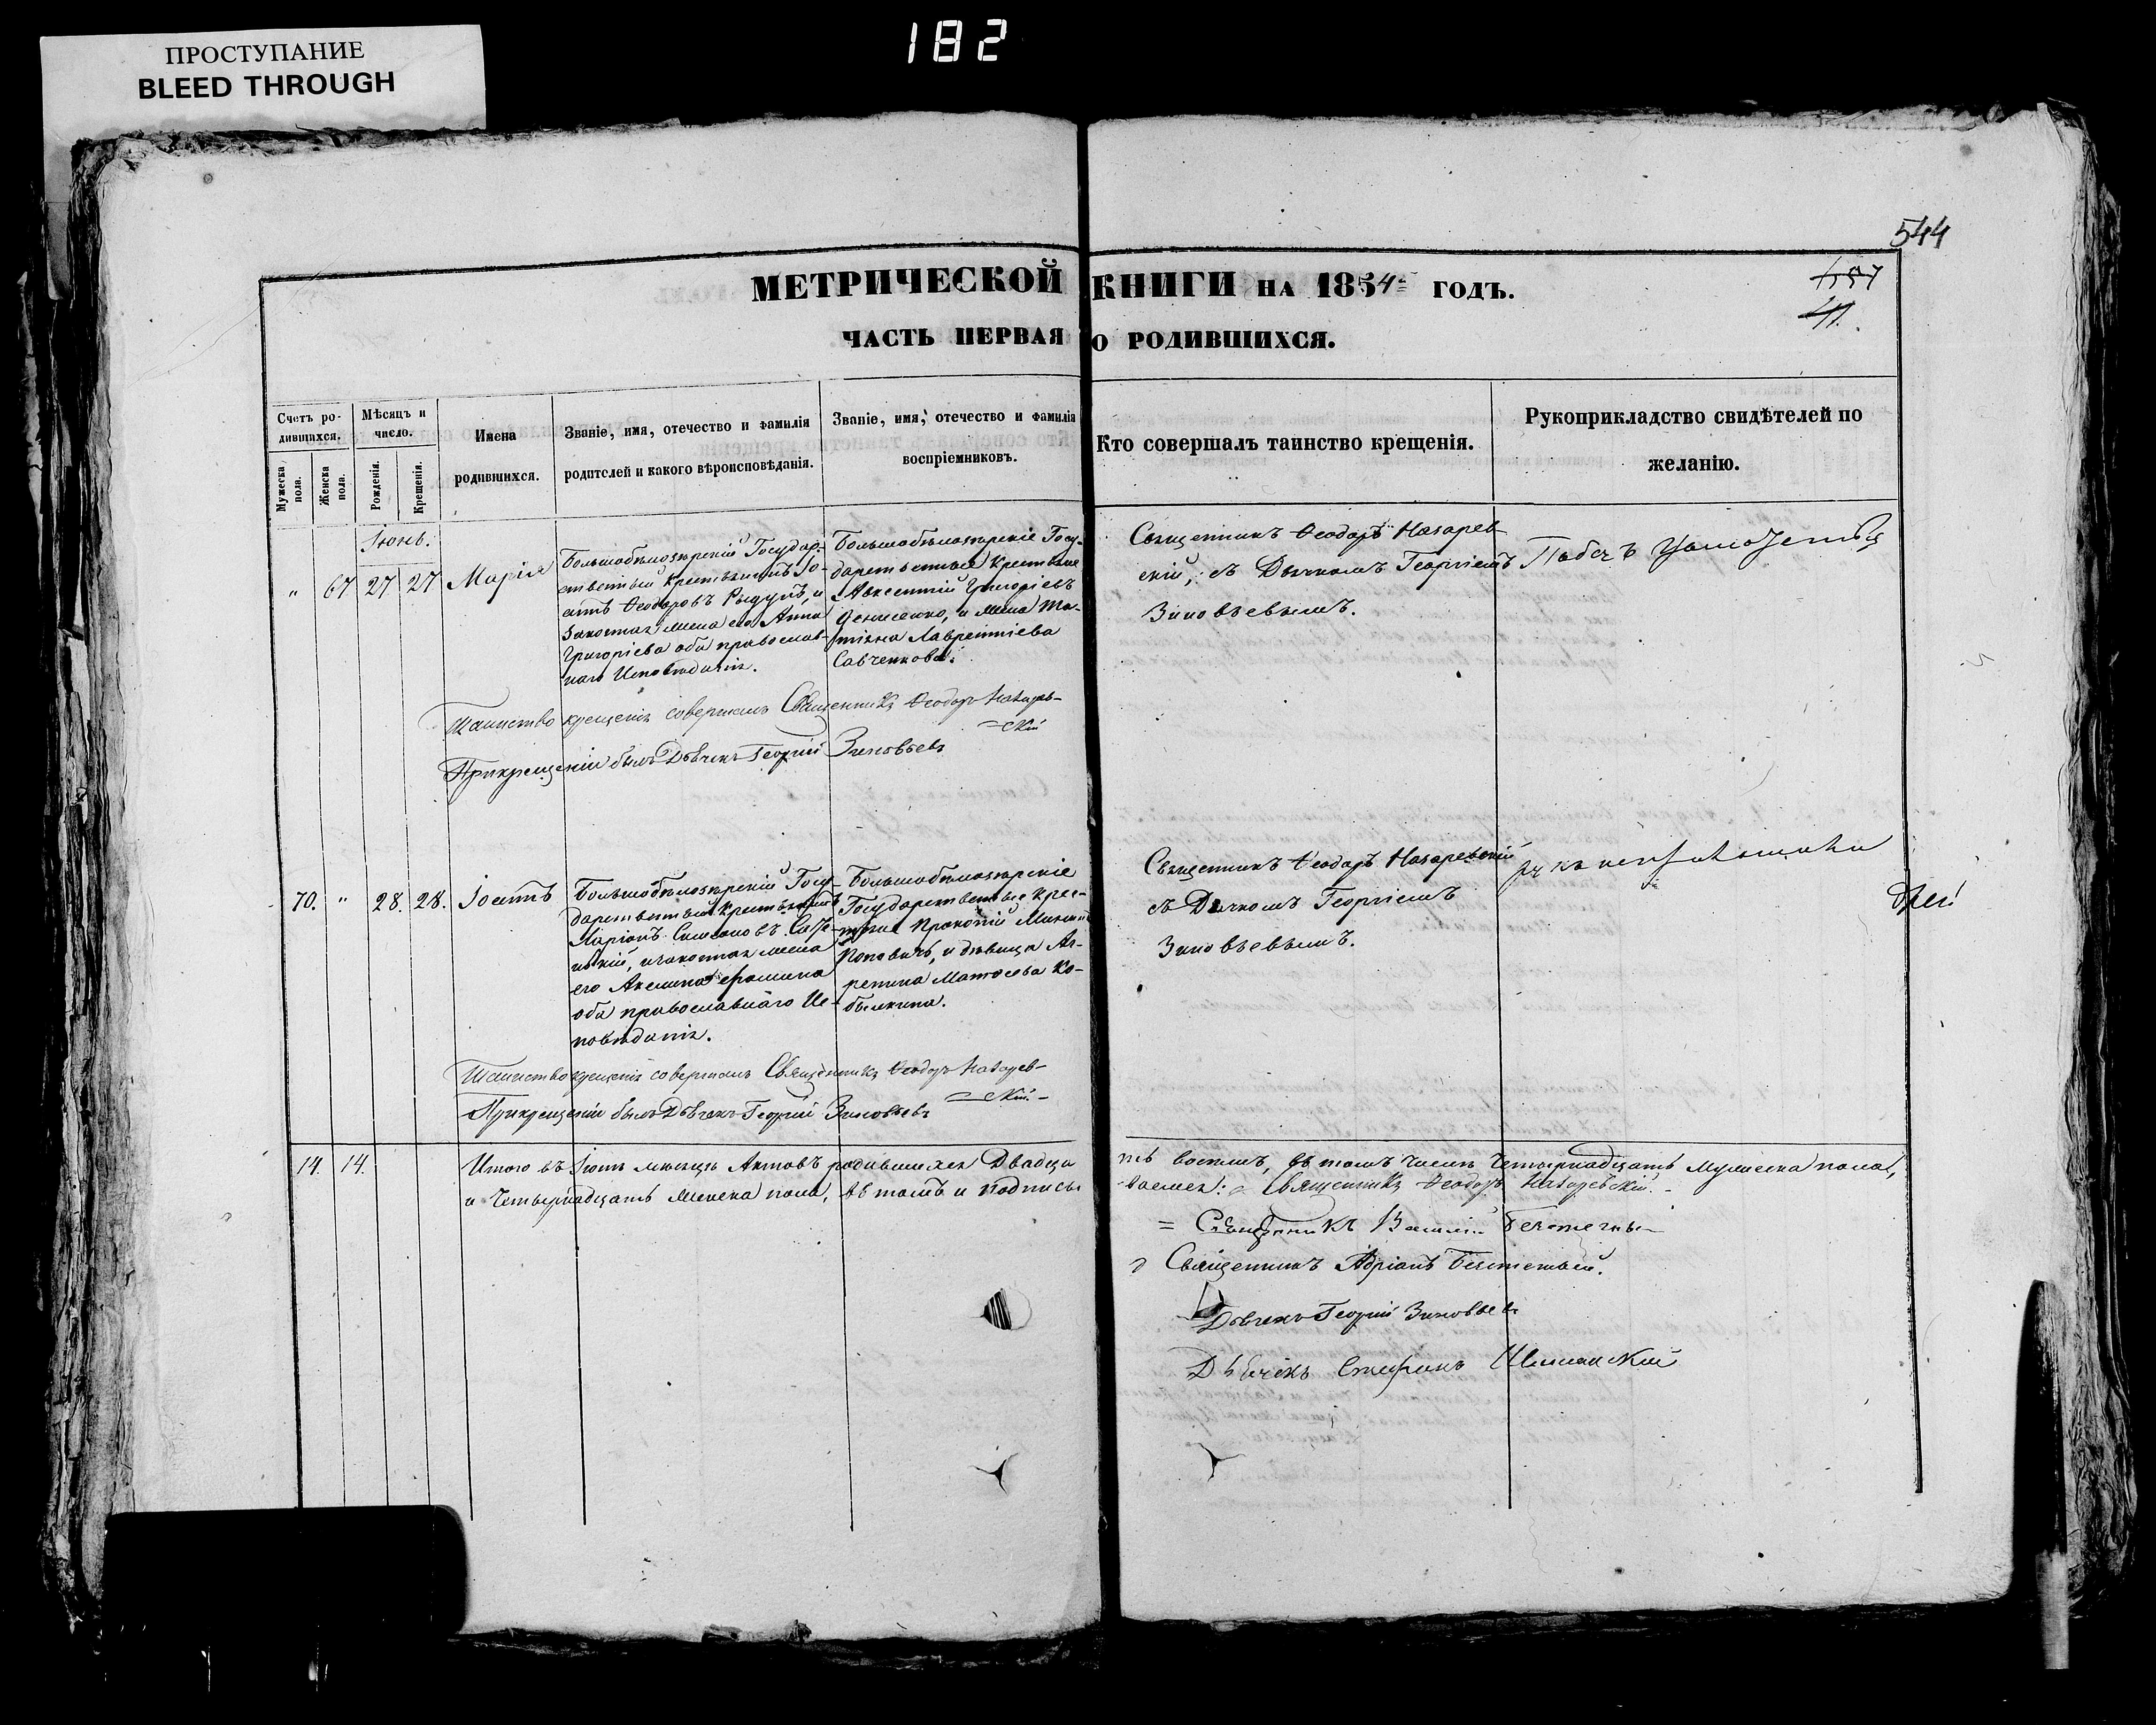 182
ПРОСТУПАНИЕ
BLEED THROUGH
544
МЕТРИЧЕСКОЙ КНИГИ НА 1854 ГОДЪ.
ЧАСТЬ ПЕРВАЯ О РОДИВШИХСЯ.
Счетъ ро-
дившихся.
Мужеска пола.
Женска пола.
Мѣсяцъ и
число.
Рожденія.
Крещенія.
Имена
родившихся.
Званіе, имя, отечество и фамилія
родителей и какого вѣроисповѣданія.
Званіе, имя, отечество и фамилія
воспріемниковъ.
Кто совершалъ таинство крещенія.
Рукоприкладство свидѣтелей по
желанію.
Іюнь.
" 67 27 27 Марія
Большобѣлозѣрскій Государ-
ственный крестьянинъ Іо-
аннъ Ѳеодоровъ и
Законная жена его Анна
Григоріева оба православ-
наго Исповѣданія.
Большобѣлозѣрскіе Госу-
дарственные крестьяне
Авксентій Григоріевъ
Денисенко, и жена Та-
тіана Лаврентіева
Савченкова.
Священникъ Ѳеодоръ Назарев-
скій, съ Дьячкомъ Георгіемъ
Зиновьевымъ.
Таинство крещенія совершалъ Священникъ Ѳеодоръ Назарев-
скій
При крещеніи былъ Дьячекъ Георгій Зиновьевъ
70. " 28. 28. Іоаннъ
Большобѣлозѣрскій Госу-
дарственный крестьянинъ
Ларіонъ Симеоновъ
и законная жена
его Акелина
оба православнаго Ис-
повѣданія.
Большобѣлозѣрскіе
Государственные крес-
тьяне Прокопій
Поповичъ, и дѣвица Аг-
репина Матвеева Ко-
былкина.
Священникъ Ѳеодоръ Назаревскій
съ Дьячкомъ Георгіемъ
Зиновьевымъ.
Таинство крещенія совершалъ Священникъ Ѳеодоръ Назарев-
скій
При крещеніи былъ Дьячекъ Георгій Зиновьевъ
14. 14. Итого въ Іюнѣ мѣсяцѣ Актовъ родившихся Двадца
ть восемь, въ томъ числѣ Четырнадцать Мужеска пола,
и Четырнадцать Женска пола, въ томъ и подписы
ваемся: Священникъ Ѳеодоръ Назаревскій.
Священникъ Василій
Священникъ Адріанъ
Дьячекъ Георгій Зиновьевъ
Дьячекъ Стефанъ